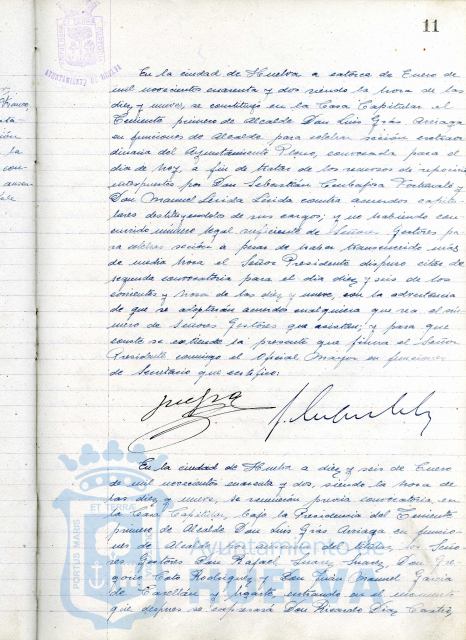 11
En la ciudad de Huelva a catorce de Enero de
mil novecientos cuarenta y dos siendo la hora de las
diez y nueve, se constituyó en la Casa Capitular el
Teniente primero de Alcalde Don Luis Grás Arriaga
en funciones de Alcalde para celebrar sesión extraor
dinaria del Ayuntamiento Pleno, convocada para el
día de hoy, a fin de tratar de los recursos de reposición
interpuestos por Don Sebastián
Don Manuel Lérida Lérida contra acuerdos capitu
lares destituyendolos de sus cargos; y no habiendo con
currido número legal suficiente de Señores Gestores pa
ra celebrar sesión a pesar de haber transcurrido más
de media hora el Señor Presidente dispuso citar de
segunda convocatoria para el día diez y seis de los
corrientes y hora de las diez y nueve, con la advertencia
de que se adoptarán acuerdos cualquiera que sea el nú
mero de Señores Gestores que asistan; y para que
conste se extiende la presente que firma el Señor
Presidente conmigo el Oficial Mayor en funciones
de Secretario que certifico.
En la ciudad de Huelva a diez y seis de Enero
de mil novecientos cuarenta y dos, siendo la hora de
las diez y nueve, se reunieron previa convocatoria en
la Casa Capitular, bajo la Presidencia del Teniente
primero de Alcalde Don Luis Grás Arriaga en funcio
nes de Alcalde los Seño
res Gestores Don Rafael Suarez Suarez, Don Gre
gorio Coto Rodriguez y Don Juan Manuel Garcia
de Castellán y Ugarte, entrando en el momento
que despues se expresará Don Ricardo Díaz
Ayuntamiento de
HUELVA
PORTUS MARIS
ET TERRAE